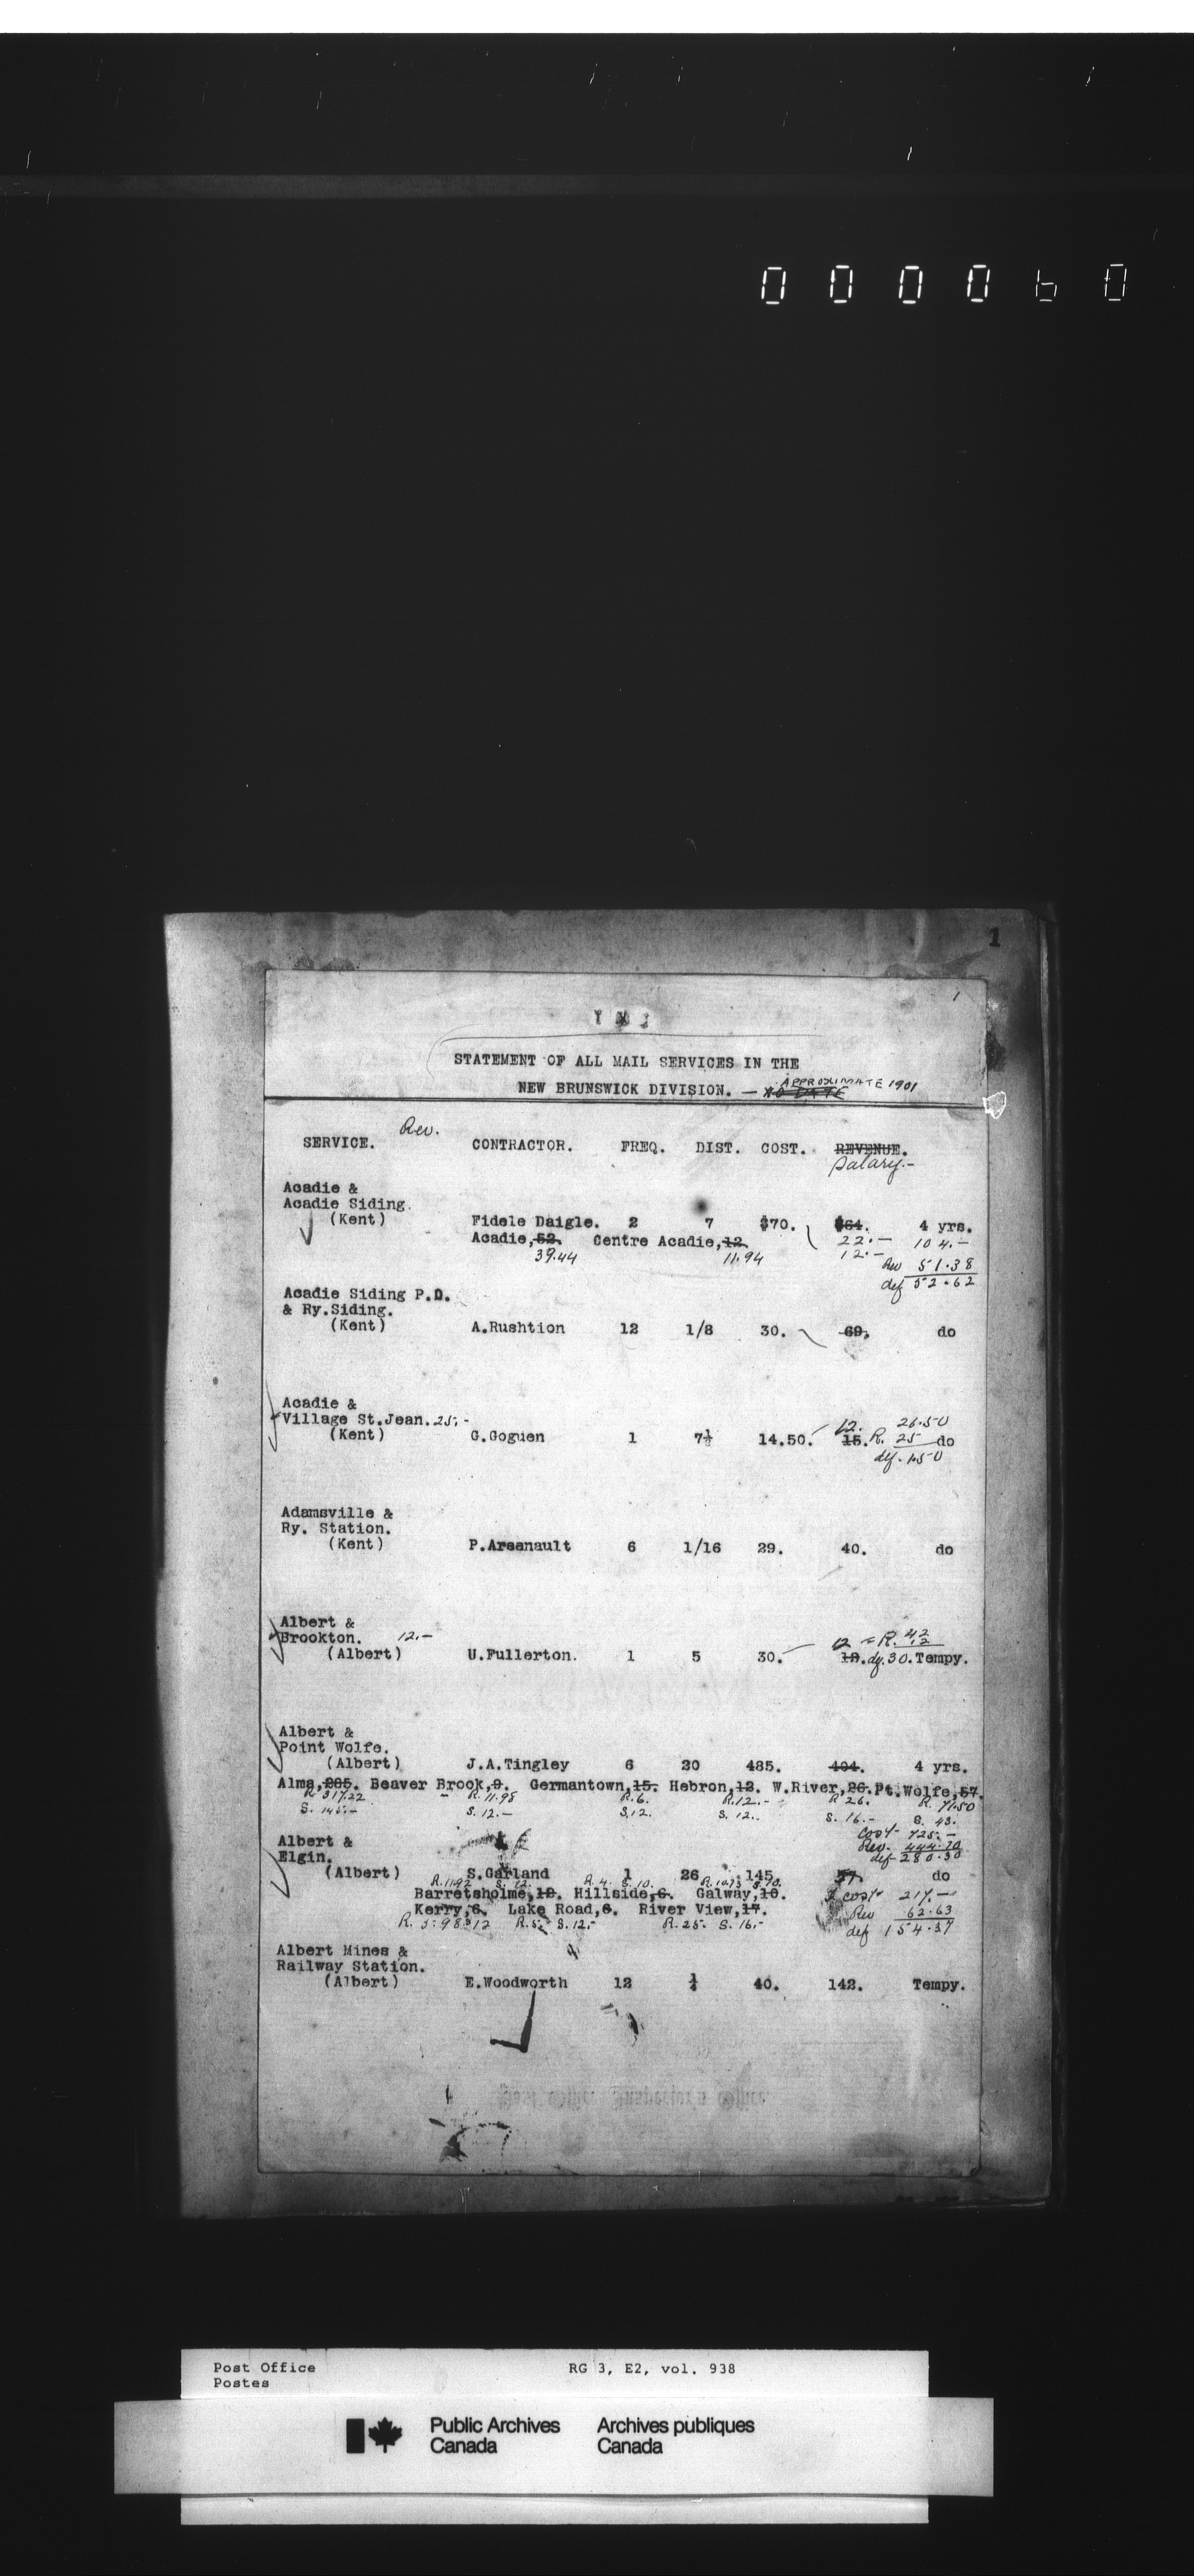 0 0 0 0 6 0
1
1
STATEMENT OF ALL MAIL SERVICES IN THE
NEW BRUNSWICK DIVISION. — NO DATE APPROXIMATE 1901
SERVICE. Rev. CONTRACTOR. FREQ. DIST. COST. REVENUE.
Salary.-
Acadie &
Acadie Siding.
(Kent) Fidele Daigle. 2 7 $70. $64. 4 yrs.
Acadie,52. Centre Acadie,12. 22.- 104.-
39.44 11.94 12.-
Rev 51.38
def 52.62
Acadie Siding P.O.
& Ry.Siding.
(Kent) A.Rushtion 12 1/8 30. 69. do
Acadie &
Village St.Jean. 25.- 12. 26.50
(Kent) G.Goguen 1 7½ 14.50. 15. R. 25 do
def. 1.50
Adamsville &
Ry. Station.
(Kent) P.Arsenault 6 1/16 29. 40. do
Albert &
Brookton. 12.- 12 R. 42
12
(Albert) U.Fullerton. 1 5 30. 19. df. 30. Tempy.
Albert &
Point Wolfe.
(Albert) J.A.Tingley 6 20 485. 404. 4 yrs.
Alma,205. Beaver Brook,9. Germantown,15. Hebron,12. W.River,26. Pt.Wolfe,57.
R 317.22 R. 11.98 R.6. R.12.- R 26. R. 71.50
S. 145.- S. 12.- S.12. S. 12.. S. 16.- S. 43.
cost- 725.-
Albert & Rev. 444.70
Elgin. def 280.30
(Albert) S.Garland 1 26 145. 57. do
R.11.92 S. 12. R. 4. S. 10. R. 10.73 S. 10.
Barretsholme,12. Hillside,6. Galway,10. cost- 217.-
Kerry,6. Lake Road,6. River View,17. Rev 62.63
R. 5.98 S 12 R.5. S.12.- R.25. S. 16.- def 154.37
Albert Mines &
Railway Station.
(Albert) E.Woodworth 12 ¼ 40. 142. Tempy.
Post Office RG 3, E2, vol. 938
Postes
Public Archives Archives publiques
Canada Canada